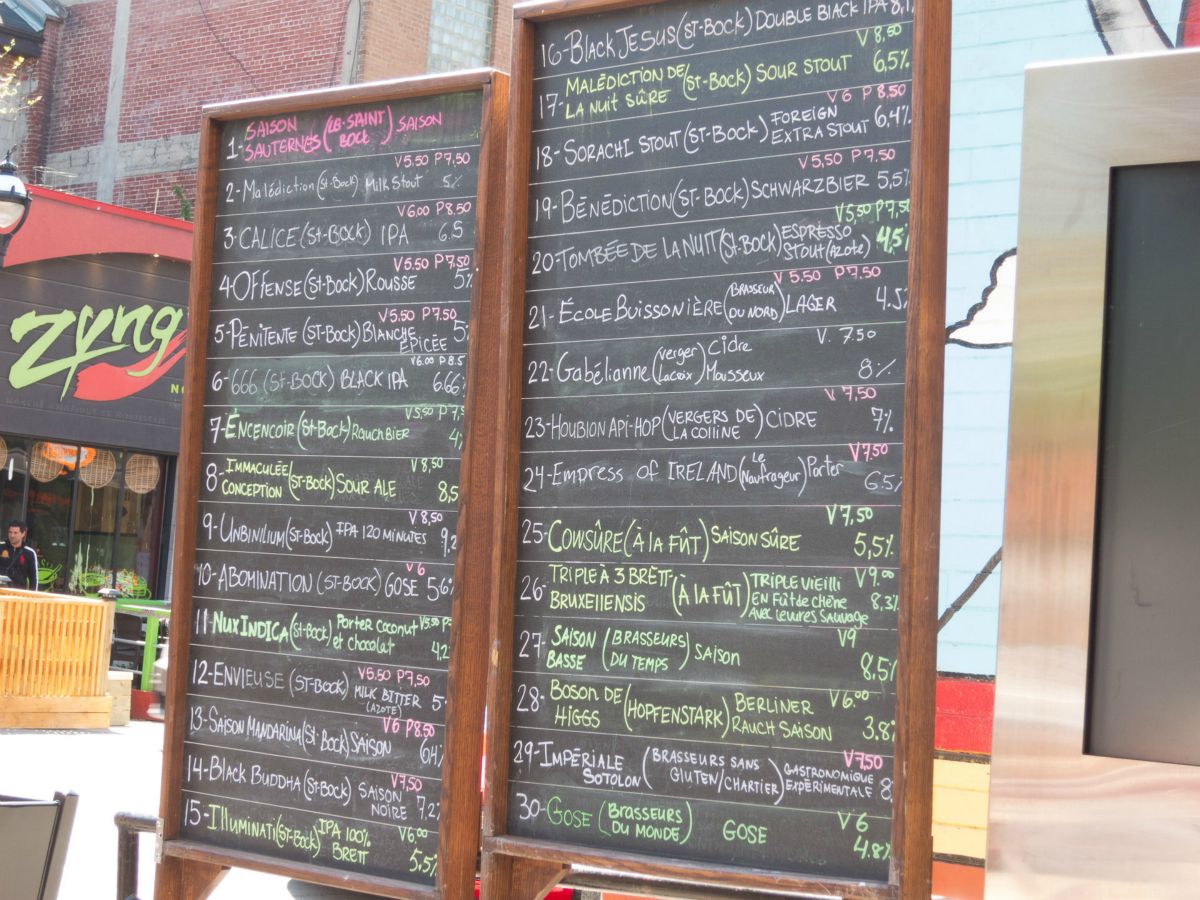 zyng
N
1- SAISON SAUTERNES (LE-SAINT BOCK) SAISON
V5.50 P7,50
2- Malédiction (St-Bock) Milk Stout 5%
V6.00 P8.50
3- CALICE (St-BOCK) IPA 6.5
V5.50 P7.50
4- OFFENSE (St-BOCK) ROUSSE 5%
V5.50 P7.50
5- PÉNITENTE (ST-BOCK) BLANCHE ÉPICÉE 5
V6.00 P8.5
6- 666 (St-BOCK) BLACK IPA 6.66
V5,50 P7,5
7- ÉNCENCOIR (St-Bock) RAUCH BIER 4,
V 8,50
8- IMMACULÉE CONCEPTION (St-BOCK) SOUR ALE 8,5
V 8,50
9- UNBINILIUM (St-BOCK) IPA 120 MINUTES 9,2
V 6
10- ABOMINATION (ST-BOCK) GOSE 5.6%
V5,50 P
11- NUX INDICA (St-Bock) Porter Coconut et chocolat 4,2
V5.50 P7,50
12- ENVIEUSE (ST-BOCK) MILK BITTER (AZOTE) 5
V6 P8,50
13- SAISON MANDARINA (St-Bock) SAISON 6,4
V7,50
14- Black Buddha (St-Bock) SAISON NOIRE 7.2
V6.00
15- Illuminati (St-Bock) IPA 100% BRETT 5,5%
16- BLACK JESUS (ST-BOCK) DOUBLE BLACK IPA 8,1
V 8,50
17- MALÉDICTION DE LA NUIT SÛRE (ST-BOCK) SOUR STOUT 6,5%
V 6 P 8.50
18- SORACHI STOUT (ST-BOCK) FOREIGN EXTRA STOUT 6,4%
V5,50 P7.50
19- BÉNÉDICTION (ST-BOCK) SCHWARZBIER 5,5%
V5,50 P7,50
20- TOMBÉE DE LA NUIT (ST-BOCK) ESPRESSO STOUT (AZOTE) 4,5%
V 5.50 P7.50
21- ÉCOLE BUISSONIÈRE (BRASSEUR DU NORD) LAGER 4.5%
V. 7.50
22- Gabélianne (Verger Lacroix) Cidre Mousseux 8%
V 7,50
23- HOUBLON API-HOP (VERGERS DE LA COLLINE) CIDRE 7%
V7.50
24- EMPRESS OF IRELAND (Le Naufrageur) Porter 6.5%
V7,50
25- COWSÛRE (À LA FÛT) SAISON SÛRE 5,5%
V9.00
26- TRIPLE À 3 BRETT BRUXELLENSIS (À LA FÛT) TRIPLE VIEILLI EN FÛT DE CHÊNE AVEC LEVURES SAUVAGE 8,3%
V9
27- SAISON BASSE (BRASSEURS DU TEMPS) SAISON 8.5%
V6.00
28- BOSON DE HIGGS (HOPFENSTARK) BERLINER RAUCH SAISON 3.8%
V7,50
29- IMPÉRIALE SOTOLON (BRASSEURS SANS GLUTEN/CHARTIER) GASTRONOMIQUE EXPÉRIMENTALE 8
V6
30- GOSE (BRASSEURS DU MONDE) GOSE 4.8%